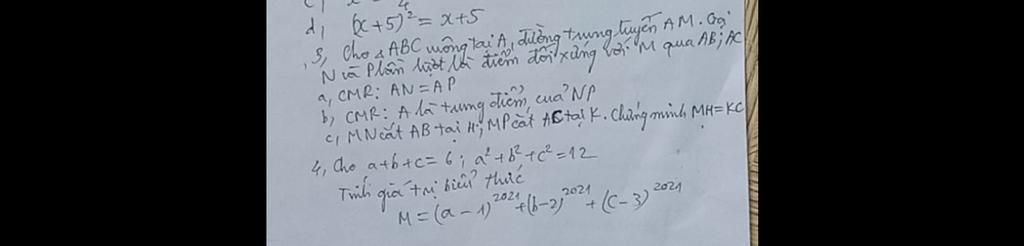 d, (x+5)² = x+5
3, Cho △ABC vuông tại A, đường trung tuyến AM. Gọi
N và P lần lượt là điểm đối xứng với M qua AB; AC
a, CMR: AN = AP
b, CMR: A là trung điểm của NP
c, MN cắt AB tại H; MP cắt AC tại K. Chứng minh MH = KC
4, Cho a+b+c = 6; a²+b²+c² = 12
Tính giá trị biểu thức
M = (a-1)²⁰²¹ + (b-2)²⁰²¹ + (c-3)²⁰²¹